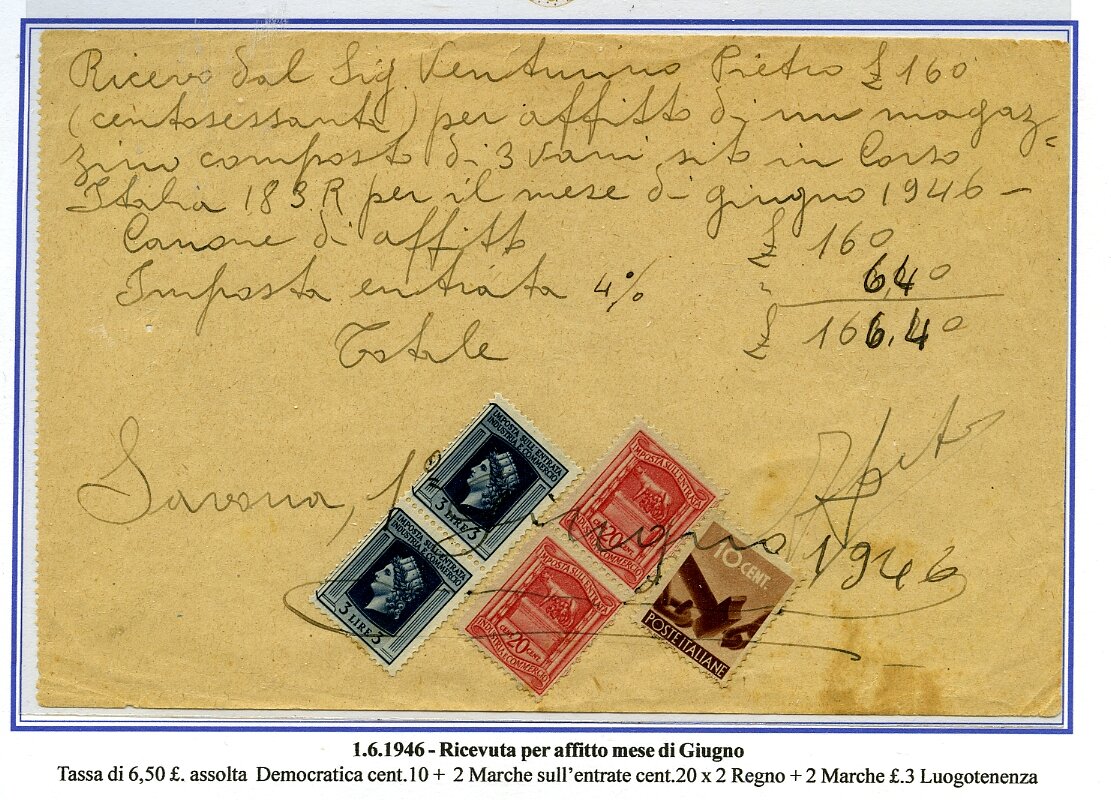 Ricevo dal Sig. Venturino Pietro £ 160
(centosessanta) per affitto di un magaz=
zino composto di 3 vani sito in Corso
Italia 183 R per il mese di giugno 1946 —
Canone di affitto £ 160
Imposta entrata 4% " 6,40
Totale £ 166.40
Savona, 1 Giugno 1946
IMPOSTA SULL'ENTRATA
INDUSTRIA E COMMERCIO
3 LIRE 3
IMPOSTA SULL'ENTRATA
INDUSTRIA E COMMERCIO
3 LIRE 3
IMPOSTA SULL'ENTRATA
CENT. 20 CENT.
INDUSTRIA E COMMERCIO
IMPOSTA SULL'ENTRATA
CENT. 20 CENT.
INDUSTRIA E COMMERCIO
10 CENT.
POSTE ITALIANE
1.6.1946 - Ricevuta per affitto mese di Giugno
Tassa di 6,50 £. assolta Democratica cent.10 + 2 Marche sull'entrate cent.20 x 2 Regno + 2 Marche £.3 Luogotenenza